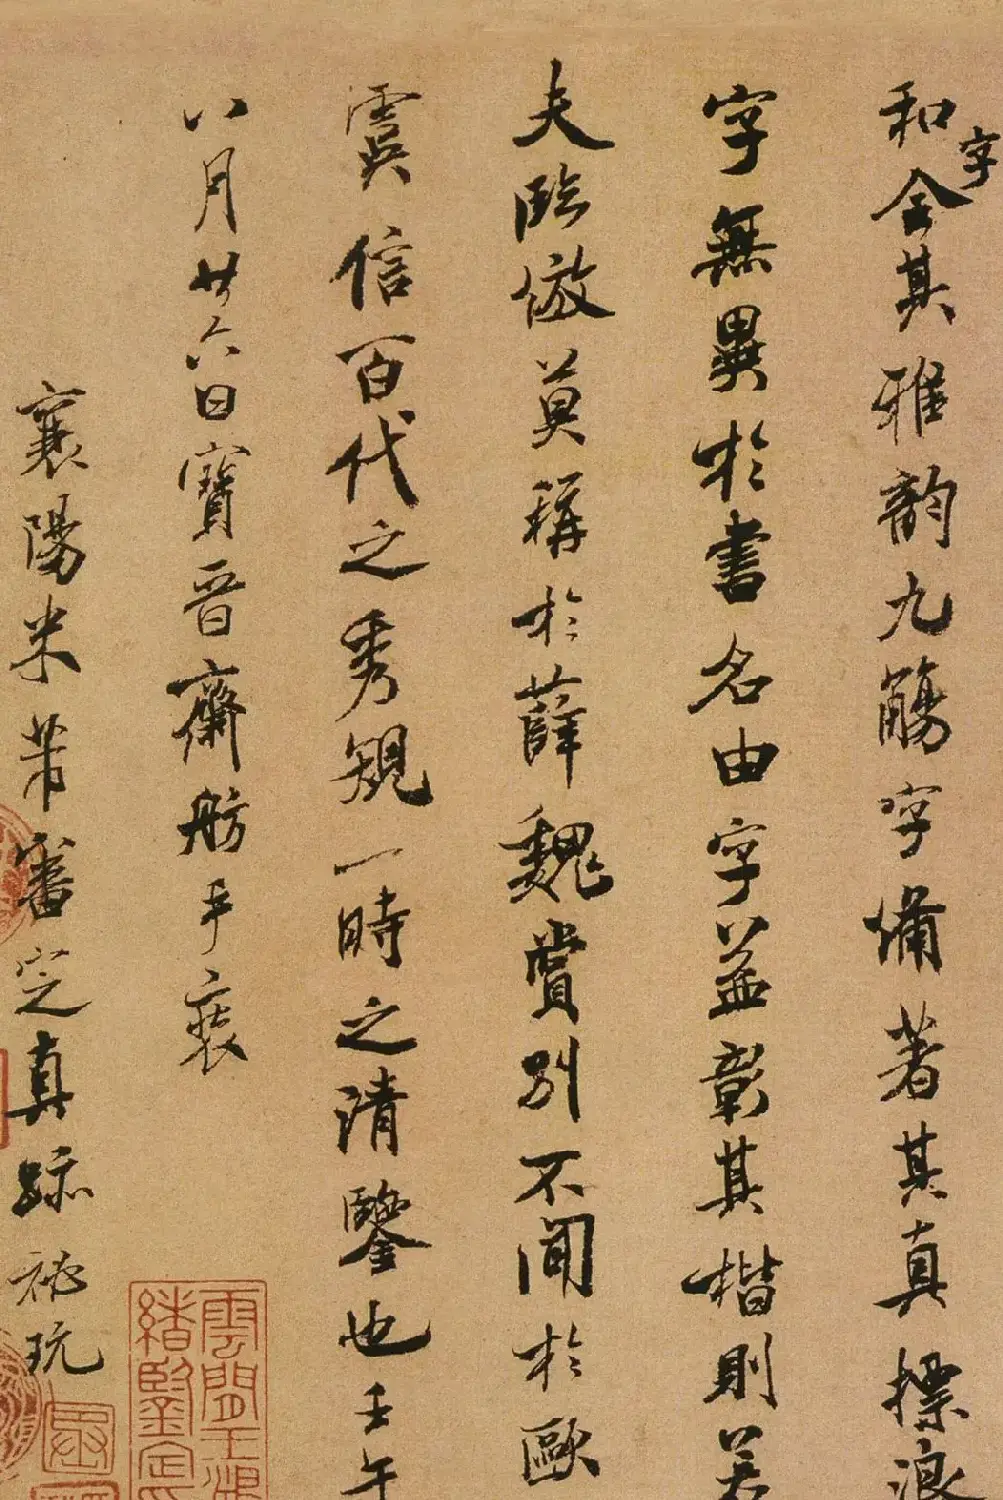 和字全其雅韵九觴字備著其真標浪
字無異於書名由字益彰其楷則若
夫臨倣莫稱於薛魏賞別不聞於歐
虞信百代之秀規一時之清鑒也壬午
八月廿六日寶晉齋舫手裝
襄陽米芾審定真跡秘玩